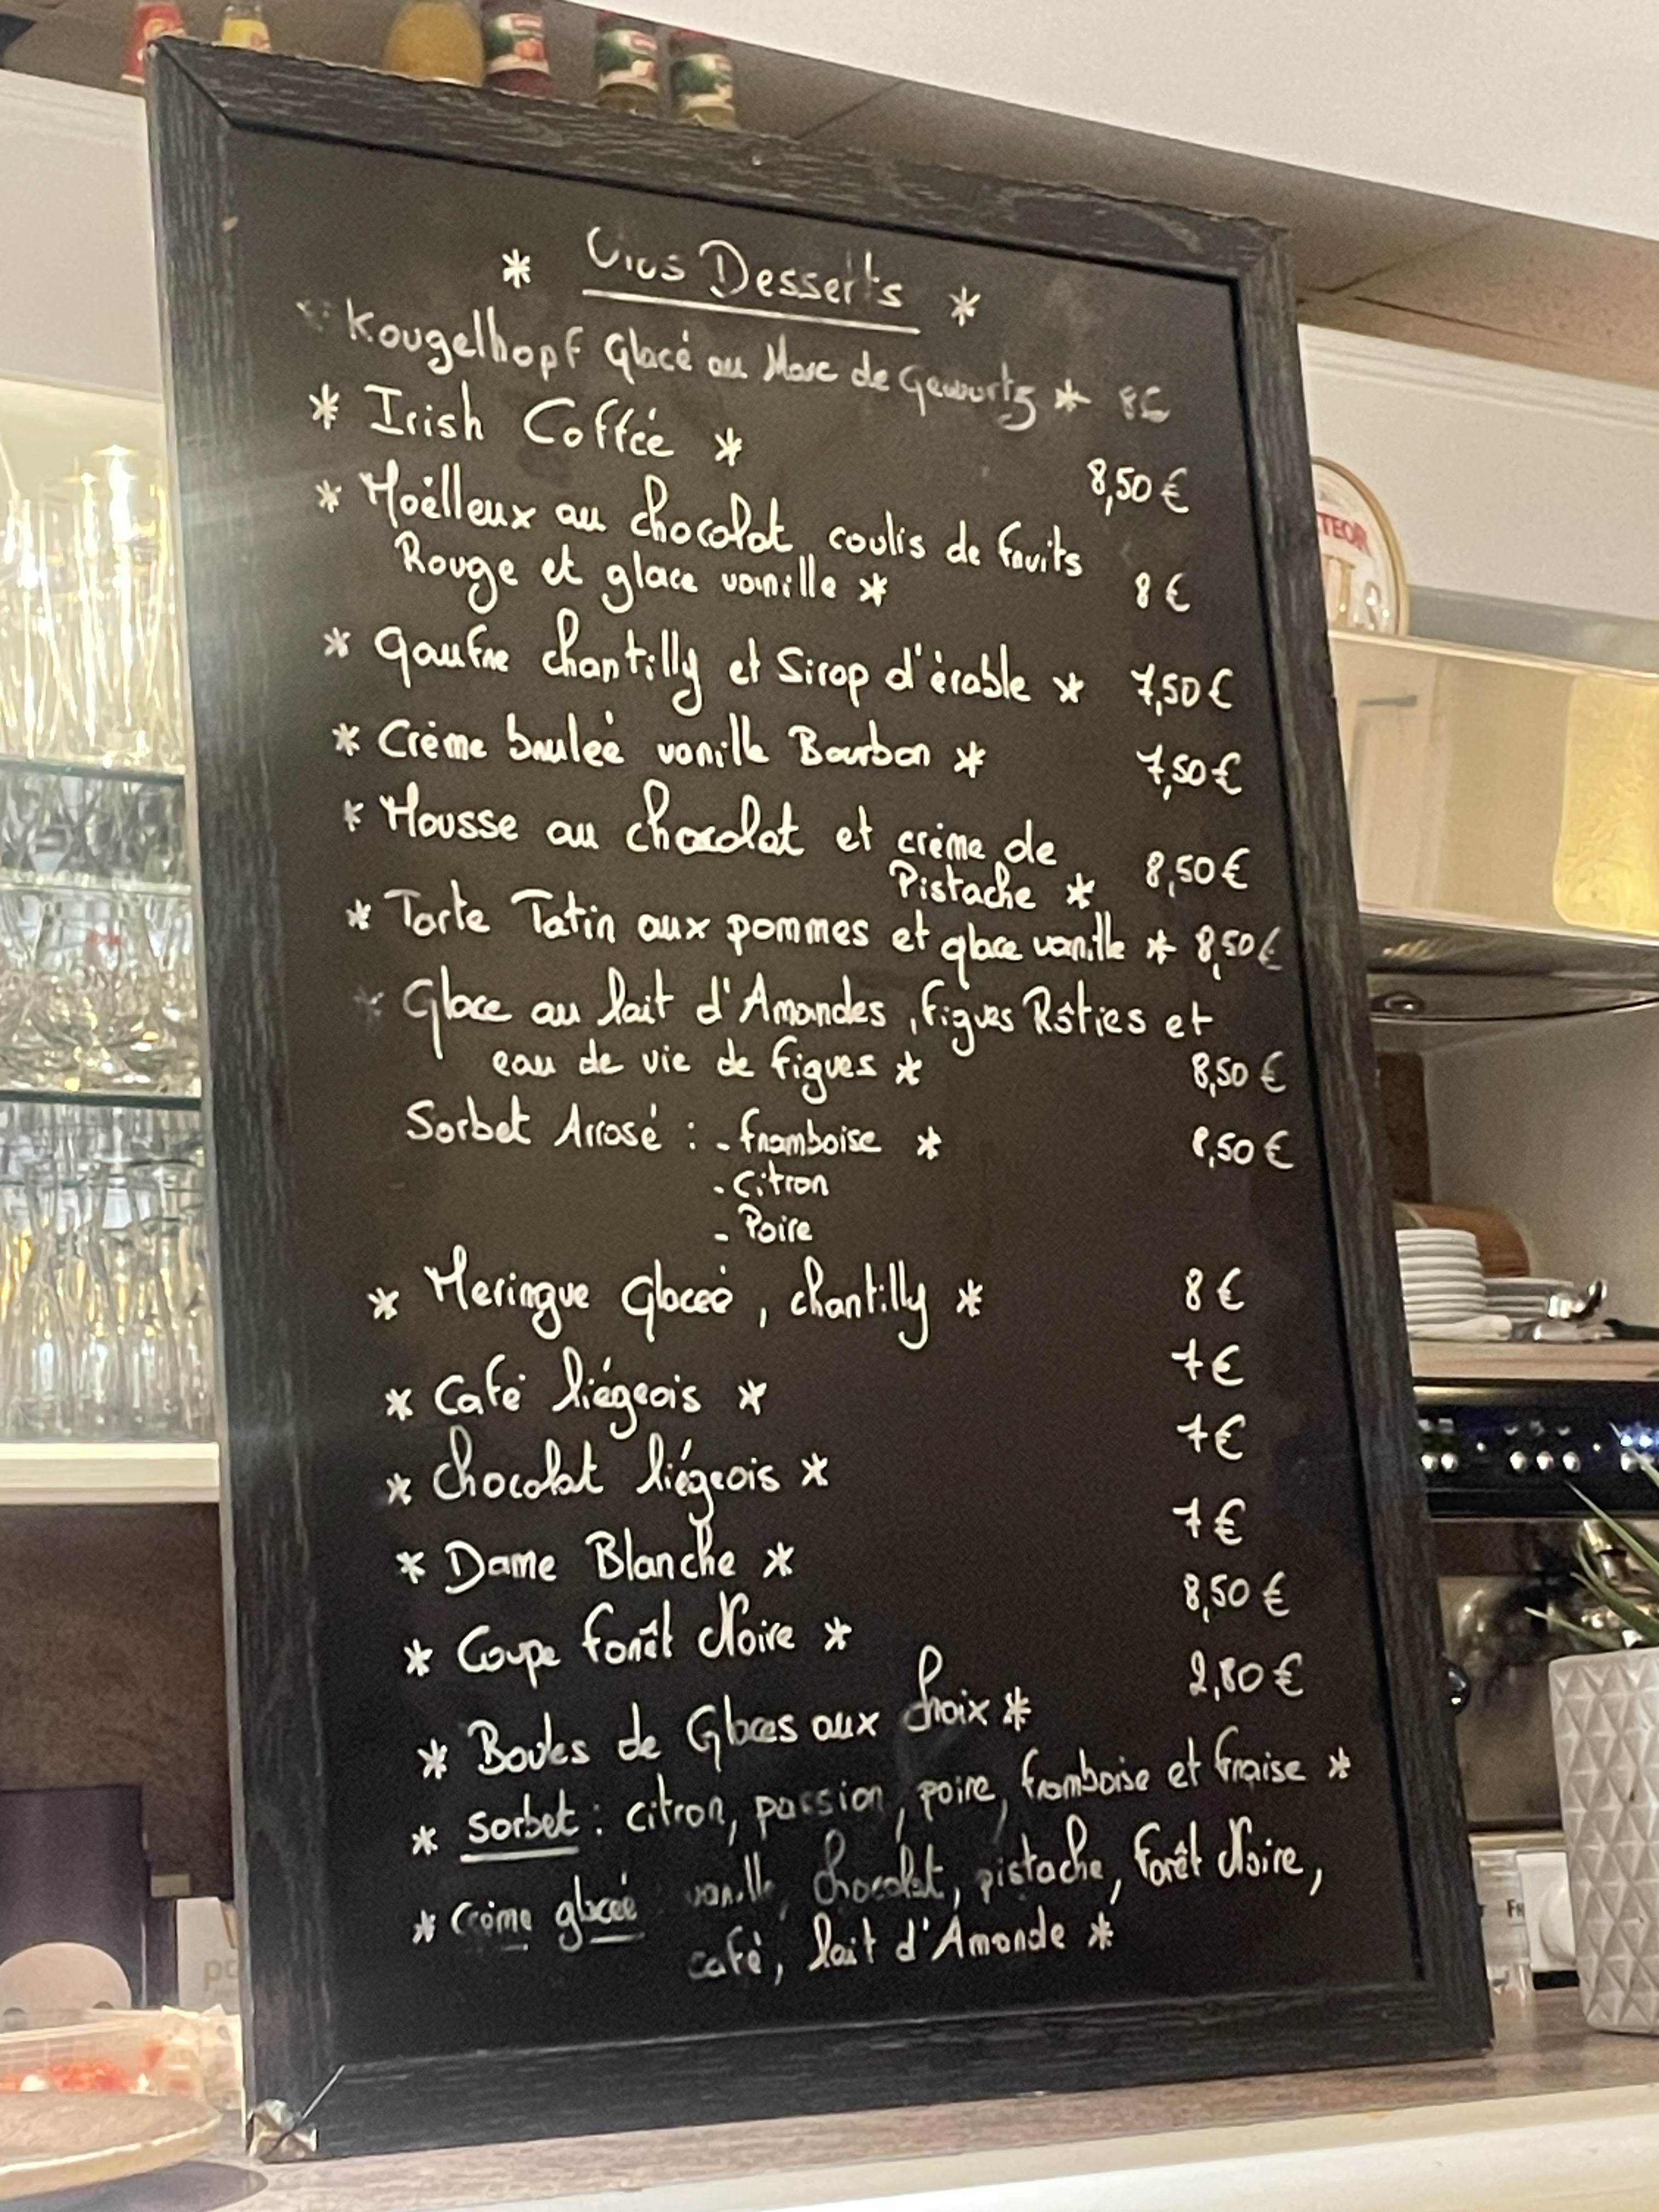 * Nos Desserts *
* Kougelhopf Glacé au Marc de Gewurtz * 8€
* Irish Coffée * 8,50€
* Moëlleux au chocolat coulis de fruits
Rouge et glace vanille * 8€
* Gaufre chantilly et Sirop d'érable * 7,50€
* Crème brulée vanille Bourbon * 7,50€
* Mousse au chocolat et crème de
Pistache * 8,50€
* Tarte Tatin aux pommes et glace vanille * 8,50€
* Glace au lait d'Amandes, figues Rôties et
eau de vie de figues * 8,50€
Sorbet Arrosé : - framboise * 8,50€
- Citron
- Poire
* Meringue Glacée, chantilly * 8€
* Café liégeois * 7€
* Chocolat liégeois * 7€
* Dame Blanche * 7€
* Coupe forêt Noire * 8,50€
* Boules de Glaces aux choix * 2,80€
* Sorbet : citron, passion, poire, framboise et fraise *
* Crème glacée vanille, chocolat, pistache, forêt Noire,
café, lait d'Amande *
TEOR